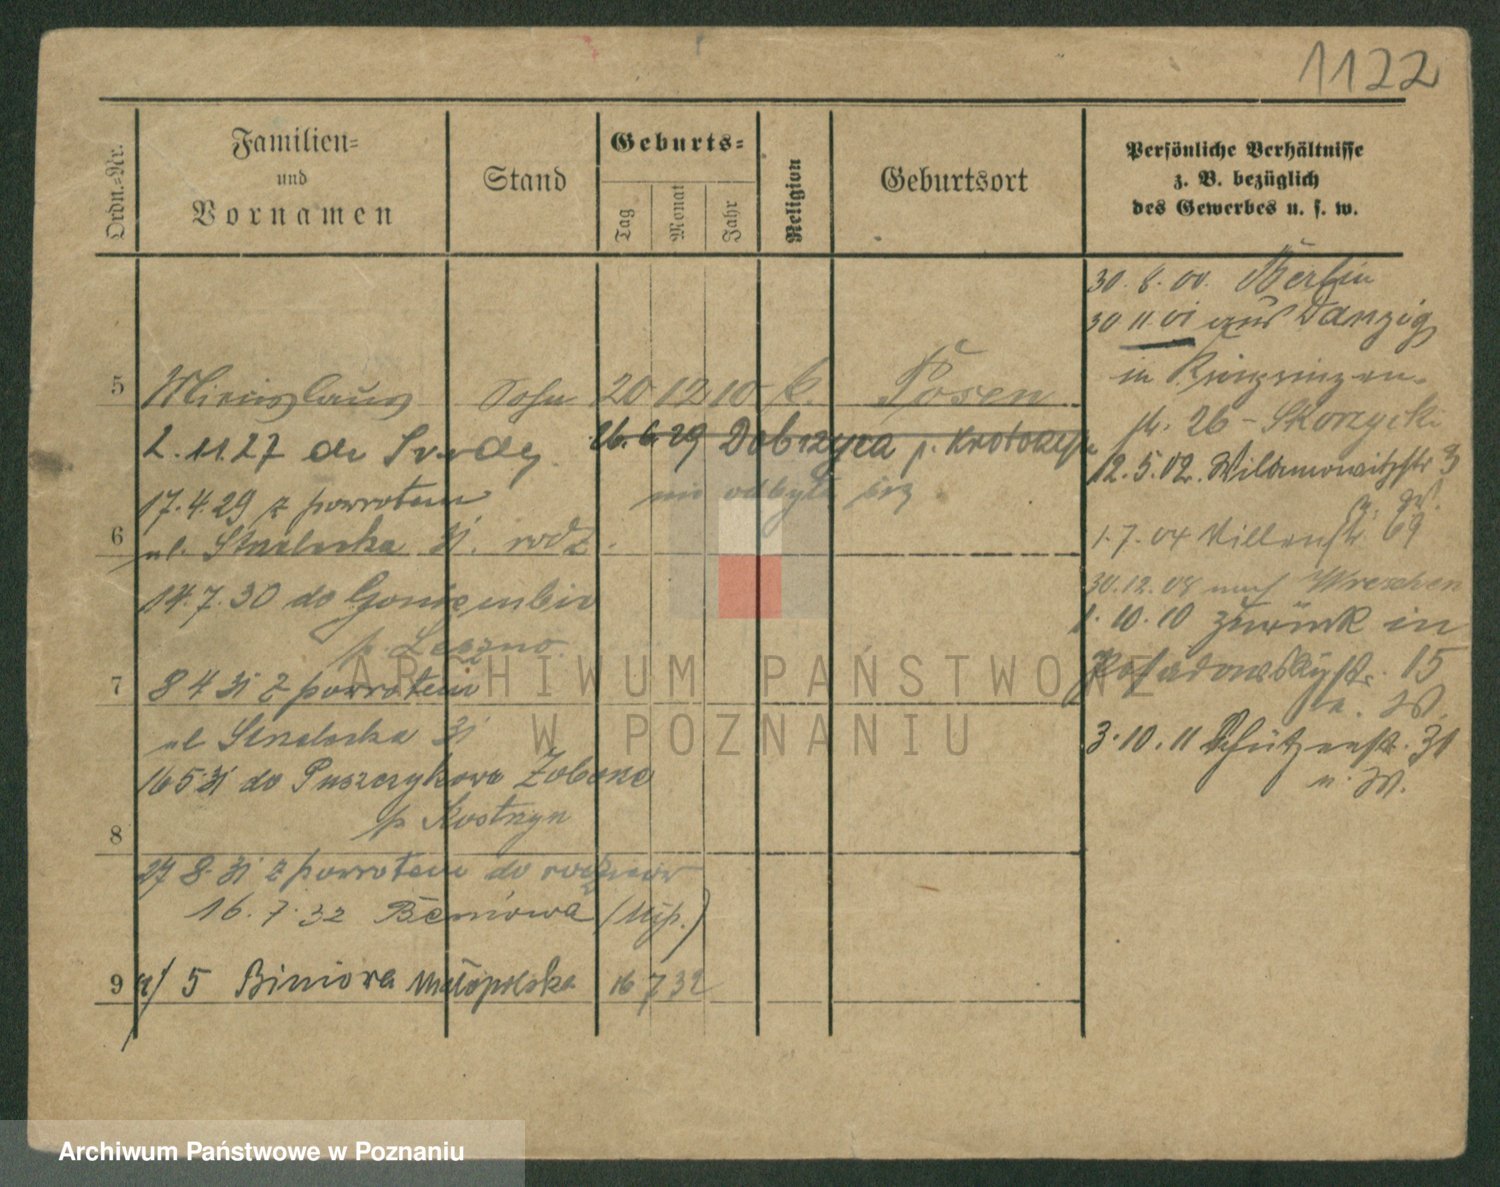 1122
Ordn.-Nr.
Familien-
und
Vornamen
Stand
Geburts-
Tag
Monat
Jahr
Religion
Geburtsort
Persönliche Verhältnisse
z. B. bezüglich
des Gewerbes u. s. w.
30. 8. 00. Berlin
30 11. 01 aus Danzig
in
26 - Skorzycki
12. 5. 02. Wilamowitzstr 3
1. 7. 04 69
30. 12. 08 nach Wreschen
1. 10. 10 zurück in
Posadowskystr. 15
u. W.
3. 10. 11 Schützenstr. 31
u. W.
5 Miecislaus Sohn 20 12 10 k. Posen
2. 11. 27 do 26. 6. 29 Dobrzyca p. Krotoszyn
17. 4. 29 z powrotem nie odbyła się
6 ul. Strzelecka 31. rodz.
14. 7. 30 do
p. Leszno
7 8 4 31 z powrotem
ul Strzelecka 31
16 5 31 do Puszczykowa
p. Kostrzyn
8
27 8. 31 z powrotem do
16. 7. 32 Beniowa (Młp.)
9 a/ 5 Biniowa Małopolska 16 7 32
ARCHIWUM PAŃSTWOWE
W POZNANIU
Archiwum Państwowe w Poznaniu